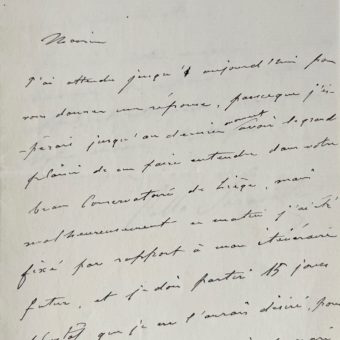 Monsieur
J'ai attendu jusqu'à aujourd'hui pour
vous donner une réponse, parceque j'es-
-pérais jusqu'au dernier moment avoir le grand
plaisir de me faire entendre dans votre
beau Conservatoire de Liège, mais
malheureusement ce matin j'ai été
fixé par rapport à mon itinéraire
futur, et je dois partir 15 jours
plustot que je ne l'aurais désiré, pour